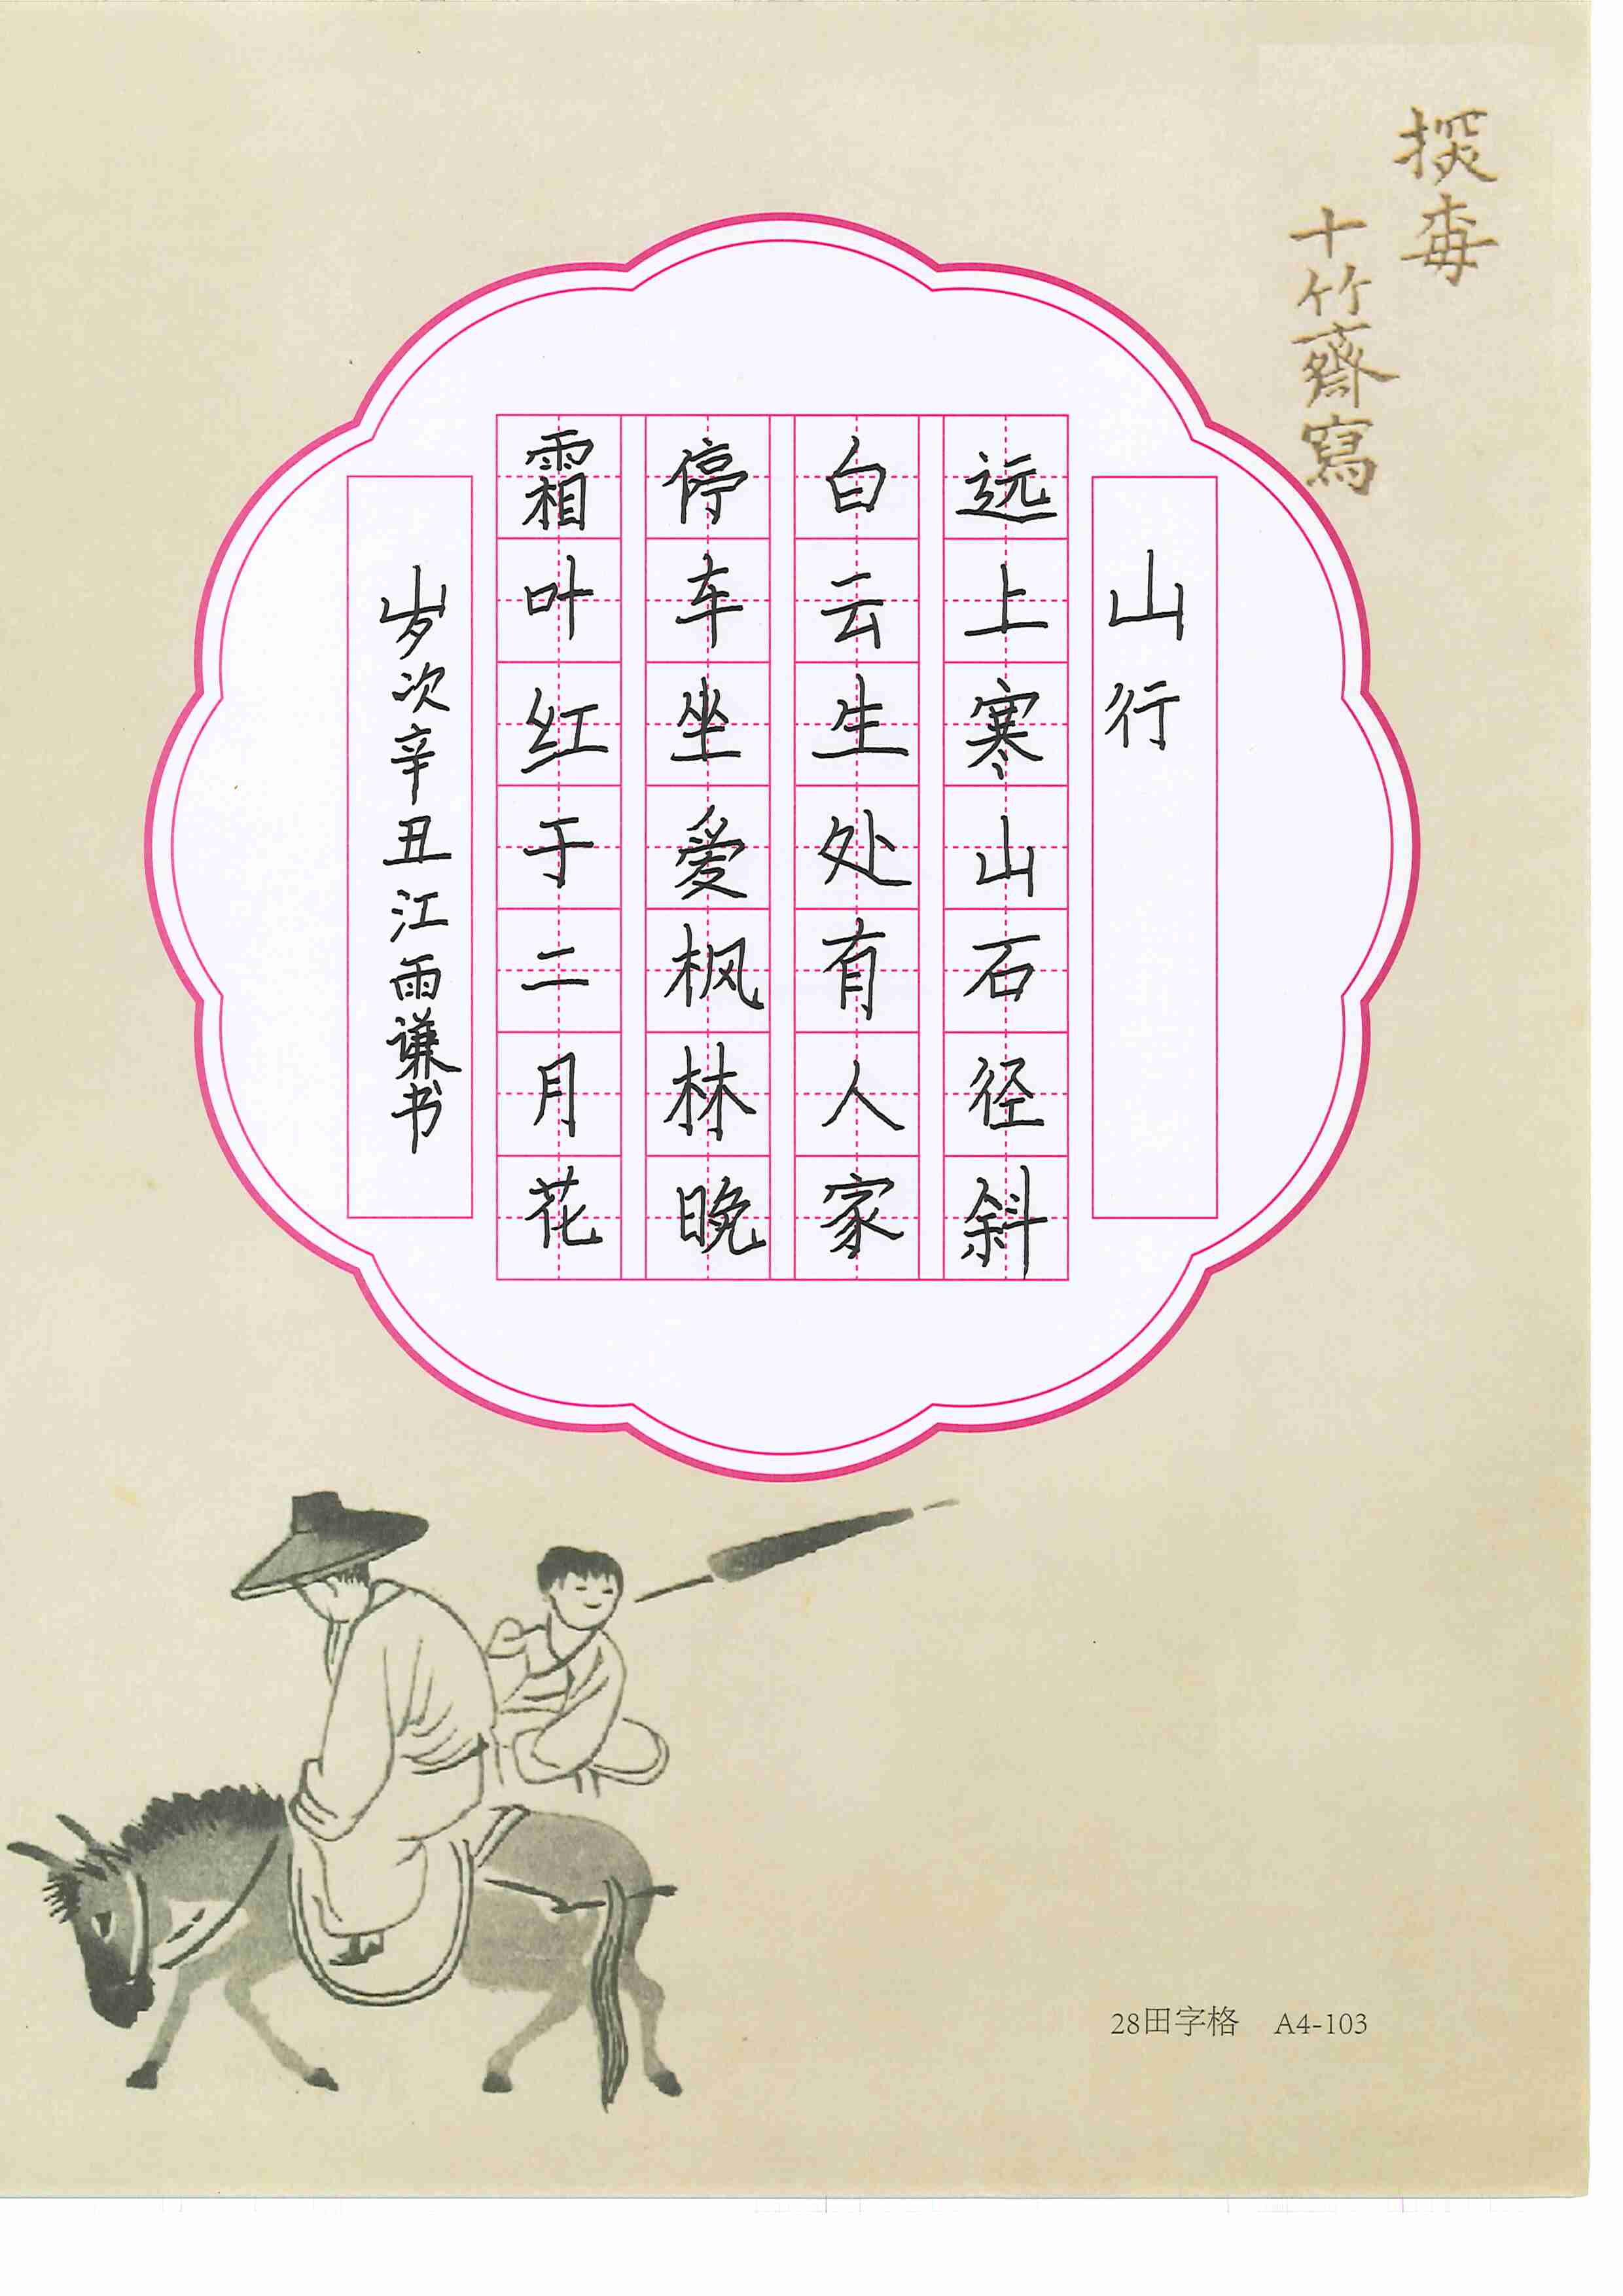 探梅
十竹齋寫
山行
远上寒山石径斜
白云生处有人家
停车坐爱枫林晚
霜叶红于二月花
岁次辛丑江雨谦书
28田字格 A4-103